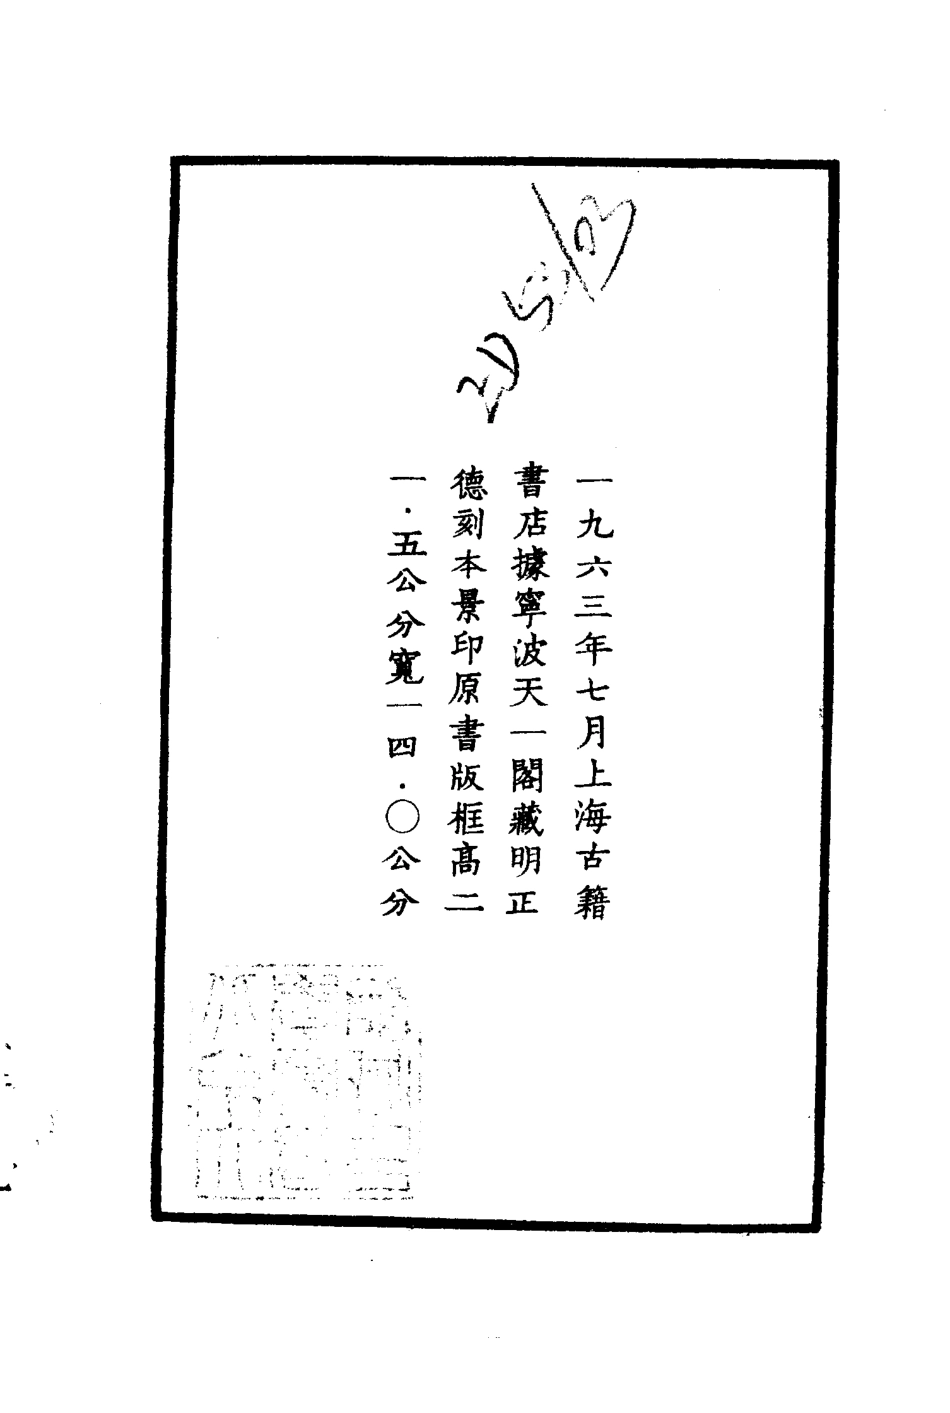 一九六三年七月上海古籍
書店據寧波天一閣藏明正
德刻本景印原書版框高二
一·五公分寬一四·〇公分